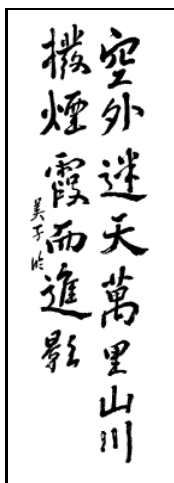 空外迷天萬里山川
撥煙霞而進影
美子吟